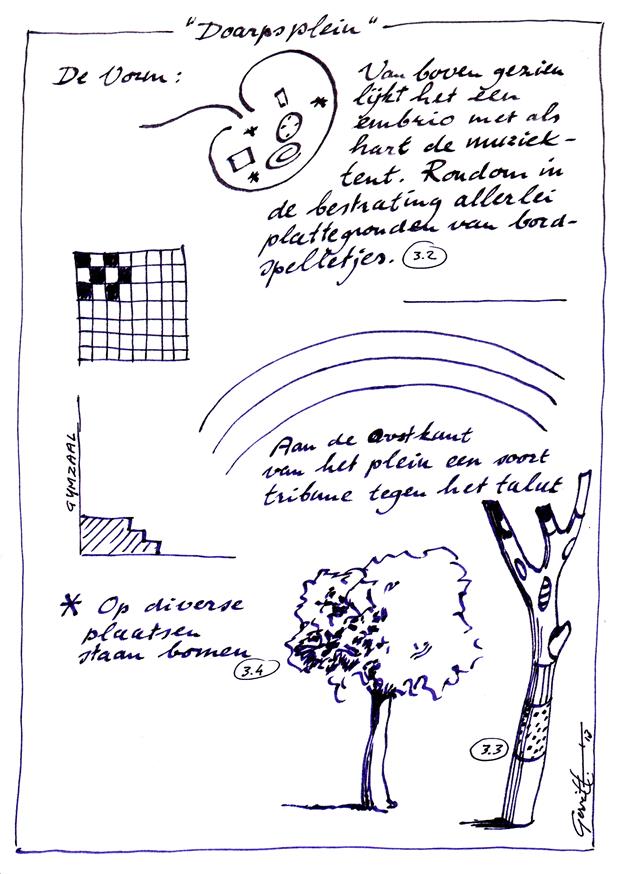 "Doarpsplein"
De Vorm:
Van boven gezien
lijkt het een
embrio met als
hart de muziek-
tent. Rondom in
de bestrating allerlei
plattegronden van bord-
spelletjes. 3.2
GYMZAAL
Aan de Oostkant
van het plein een soort
tribune tegen het talut
* Op diverse
plaatsen
staan bomen
3.4
3.3